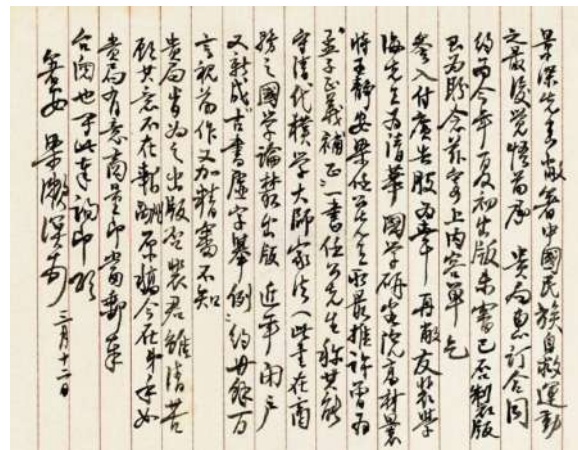 景深先生敝著中國民族自救運動
之最後覺悟前承　貴局惠訂合同
約為今年夏初出版未審已否製版
甚為盼念茲寄上內容單乞
參入付廣告股為幸　再敝友裴學
海先生為清華國學研究院高材畏
時王靜安梁任公先生所最推許曾為
孟子正義補正一書任公先生称其能
守清代樸學大師家法（此書在商
務之國學論叢出版　近年閉户
又新成古書虛字舉例約廿餘万
言視前作又加精審不知
貴局肯為之出版否裴君雖清苦
顧其意不在報酬原稿今在身手如
貴局有意商量即當郵奉
台閱也耑此奉詢即頌
箸安　梁漱溟白　三月十二日